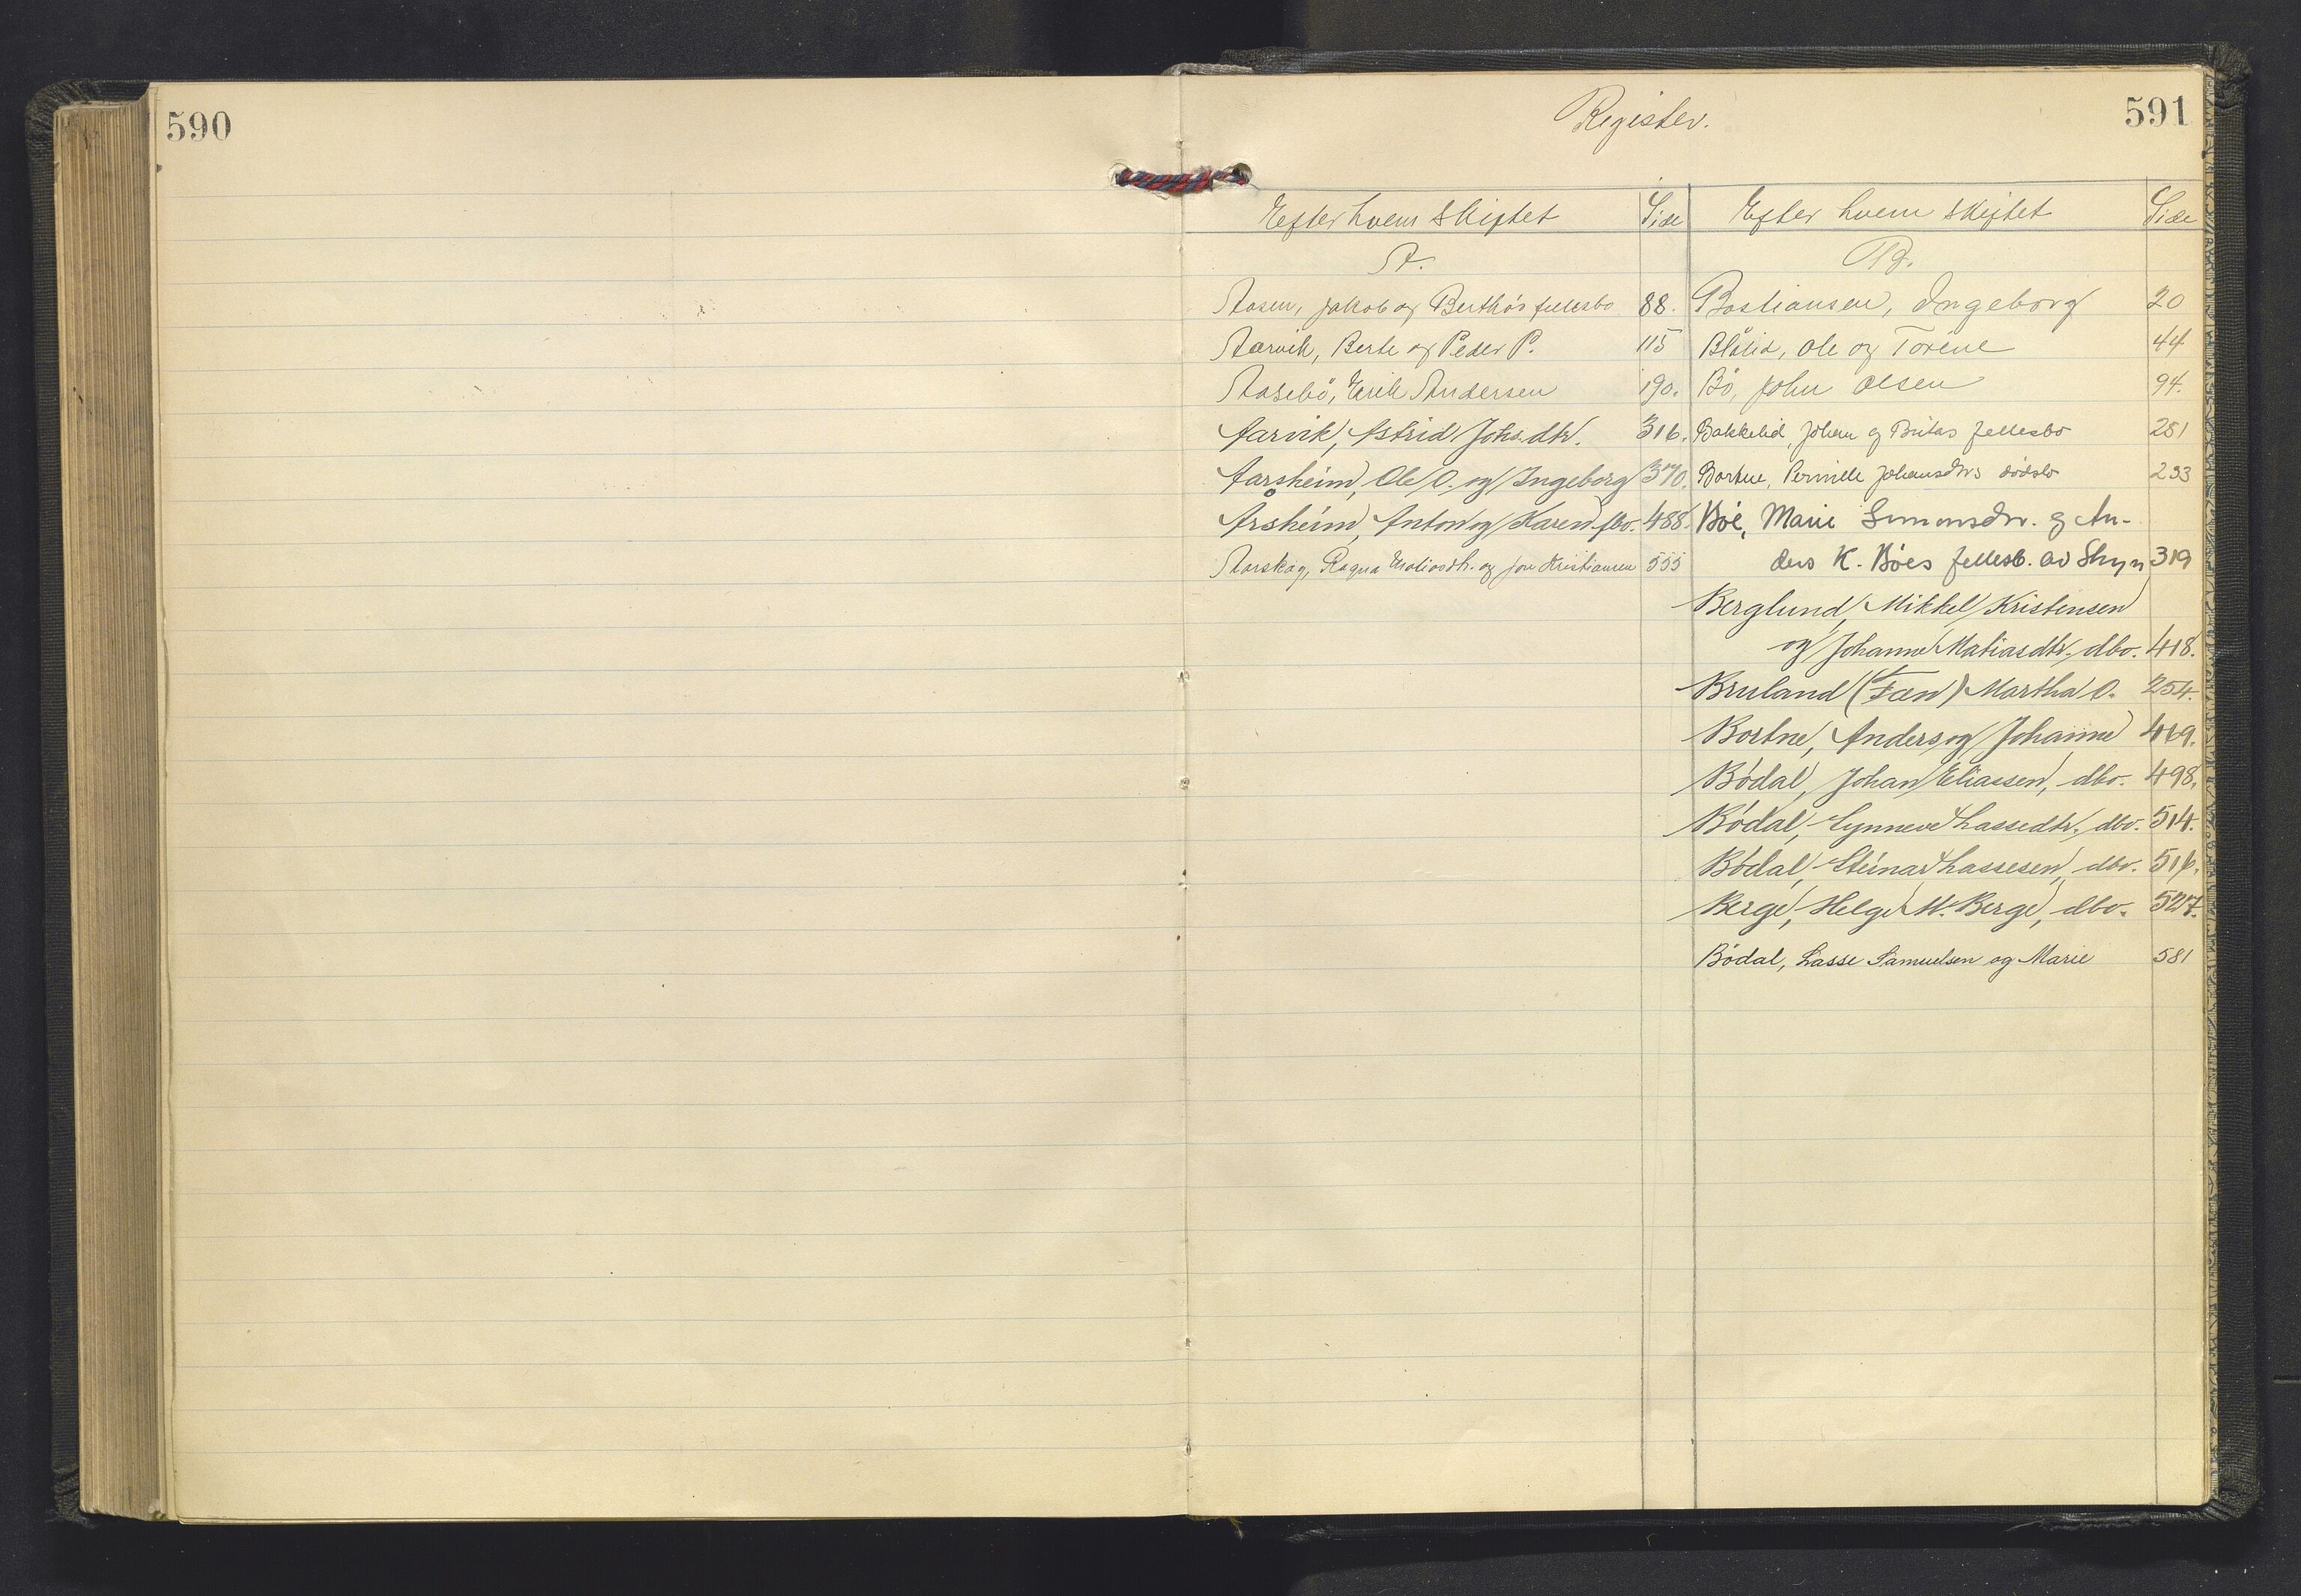 590
Register.
591
Efter hvem skiftet Side
A.
Aasen, Jakob og Berthes fellesbo 88.
Aarvik, Berte og Peder P. 115
Aasebö, Erik Andersen 190.
Aarvik, Astrid Johs.dtr. 316.
Aarsheim, Ole O. og Ingeborg 370.
Årsheim, Anton og Karen fbo. 488.
Aarskog, Ragna og Kristiansen 555
Efter hvem skiftet Side
B.
Bastiansen, Ingeborg 20
Blålid, Ole og Torene 44
Bö, John Olsen 94.
Bakkelid, Johan og Britas fellesbo 281
Bortne, Pernille Johansdtrs dödsbo 293
Böe, Marie Simonsdtr. og An-
ders K. Böes fellesb. av Stryn 319
Berglund, Mikkel Kristensen
og Johanne Matiasdtr., dbo. 418.
Bruland (Fæn) Martha O. 254.
Bortne, Anders og Johanne 469.
Bödal, Johan Eliassen, dbo. 498.
Bödal, Synneve Lassedtr., dbo. 514.
Bödal, Steinar Lassesen, dbo. 516.
Berge, Helge M. Berge, dbo. 527.
Bödal, Lasse Samuelsen og Marie 581